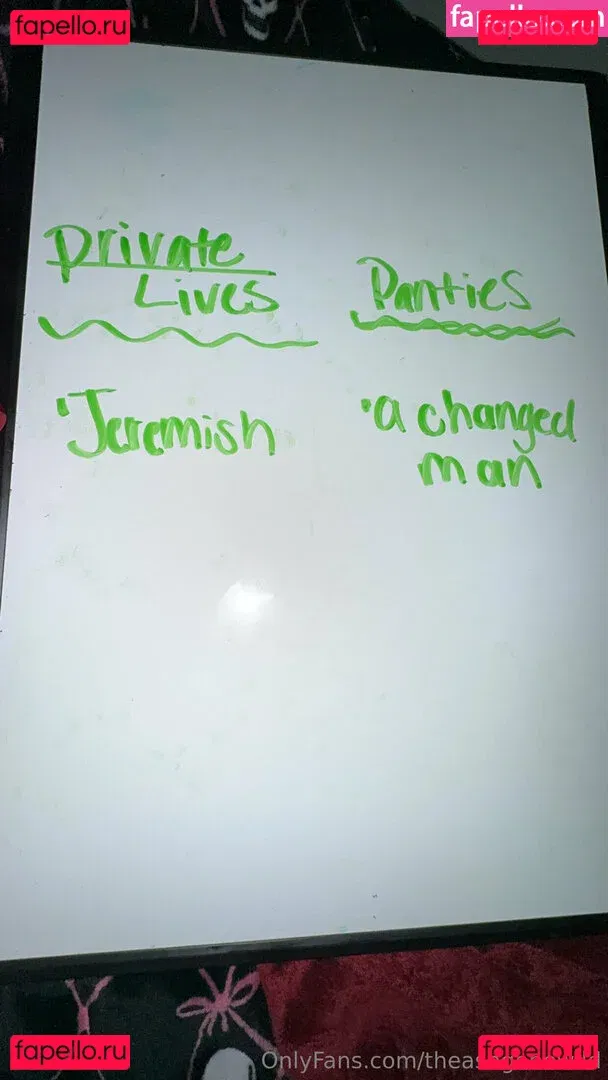 fapello.ru
fapello.ru
Private
Lives
Panties
'Jeremish
'a changed
man
fapello.ru
fapello.ru